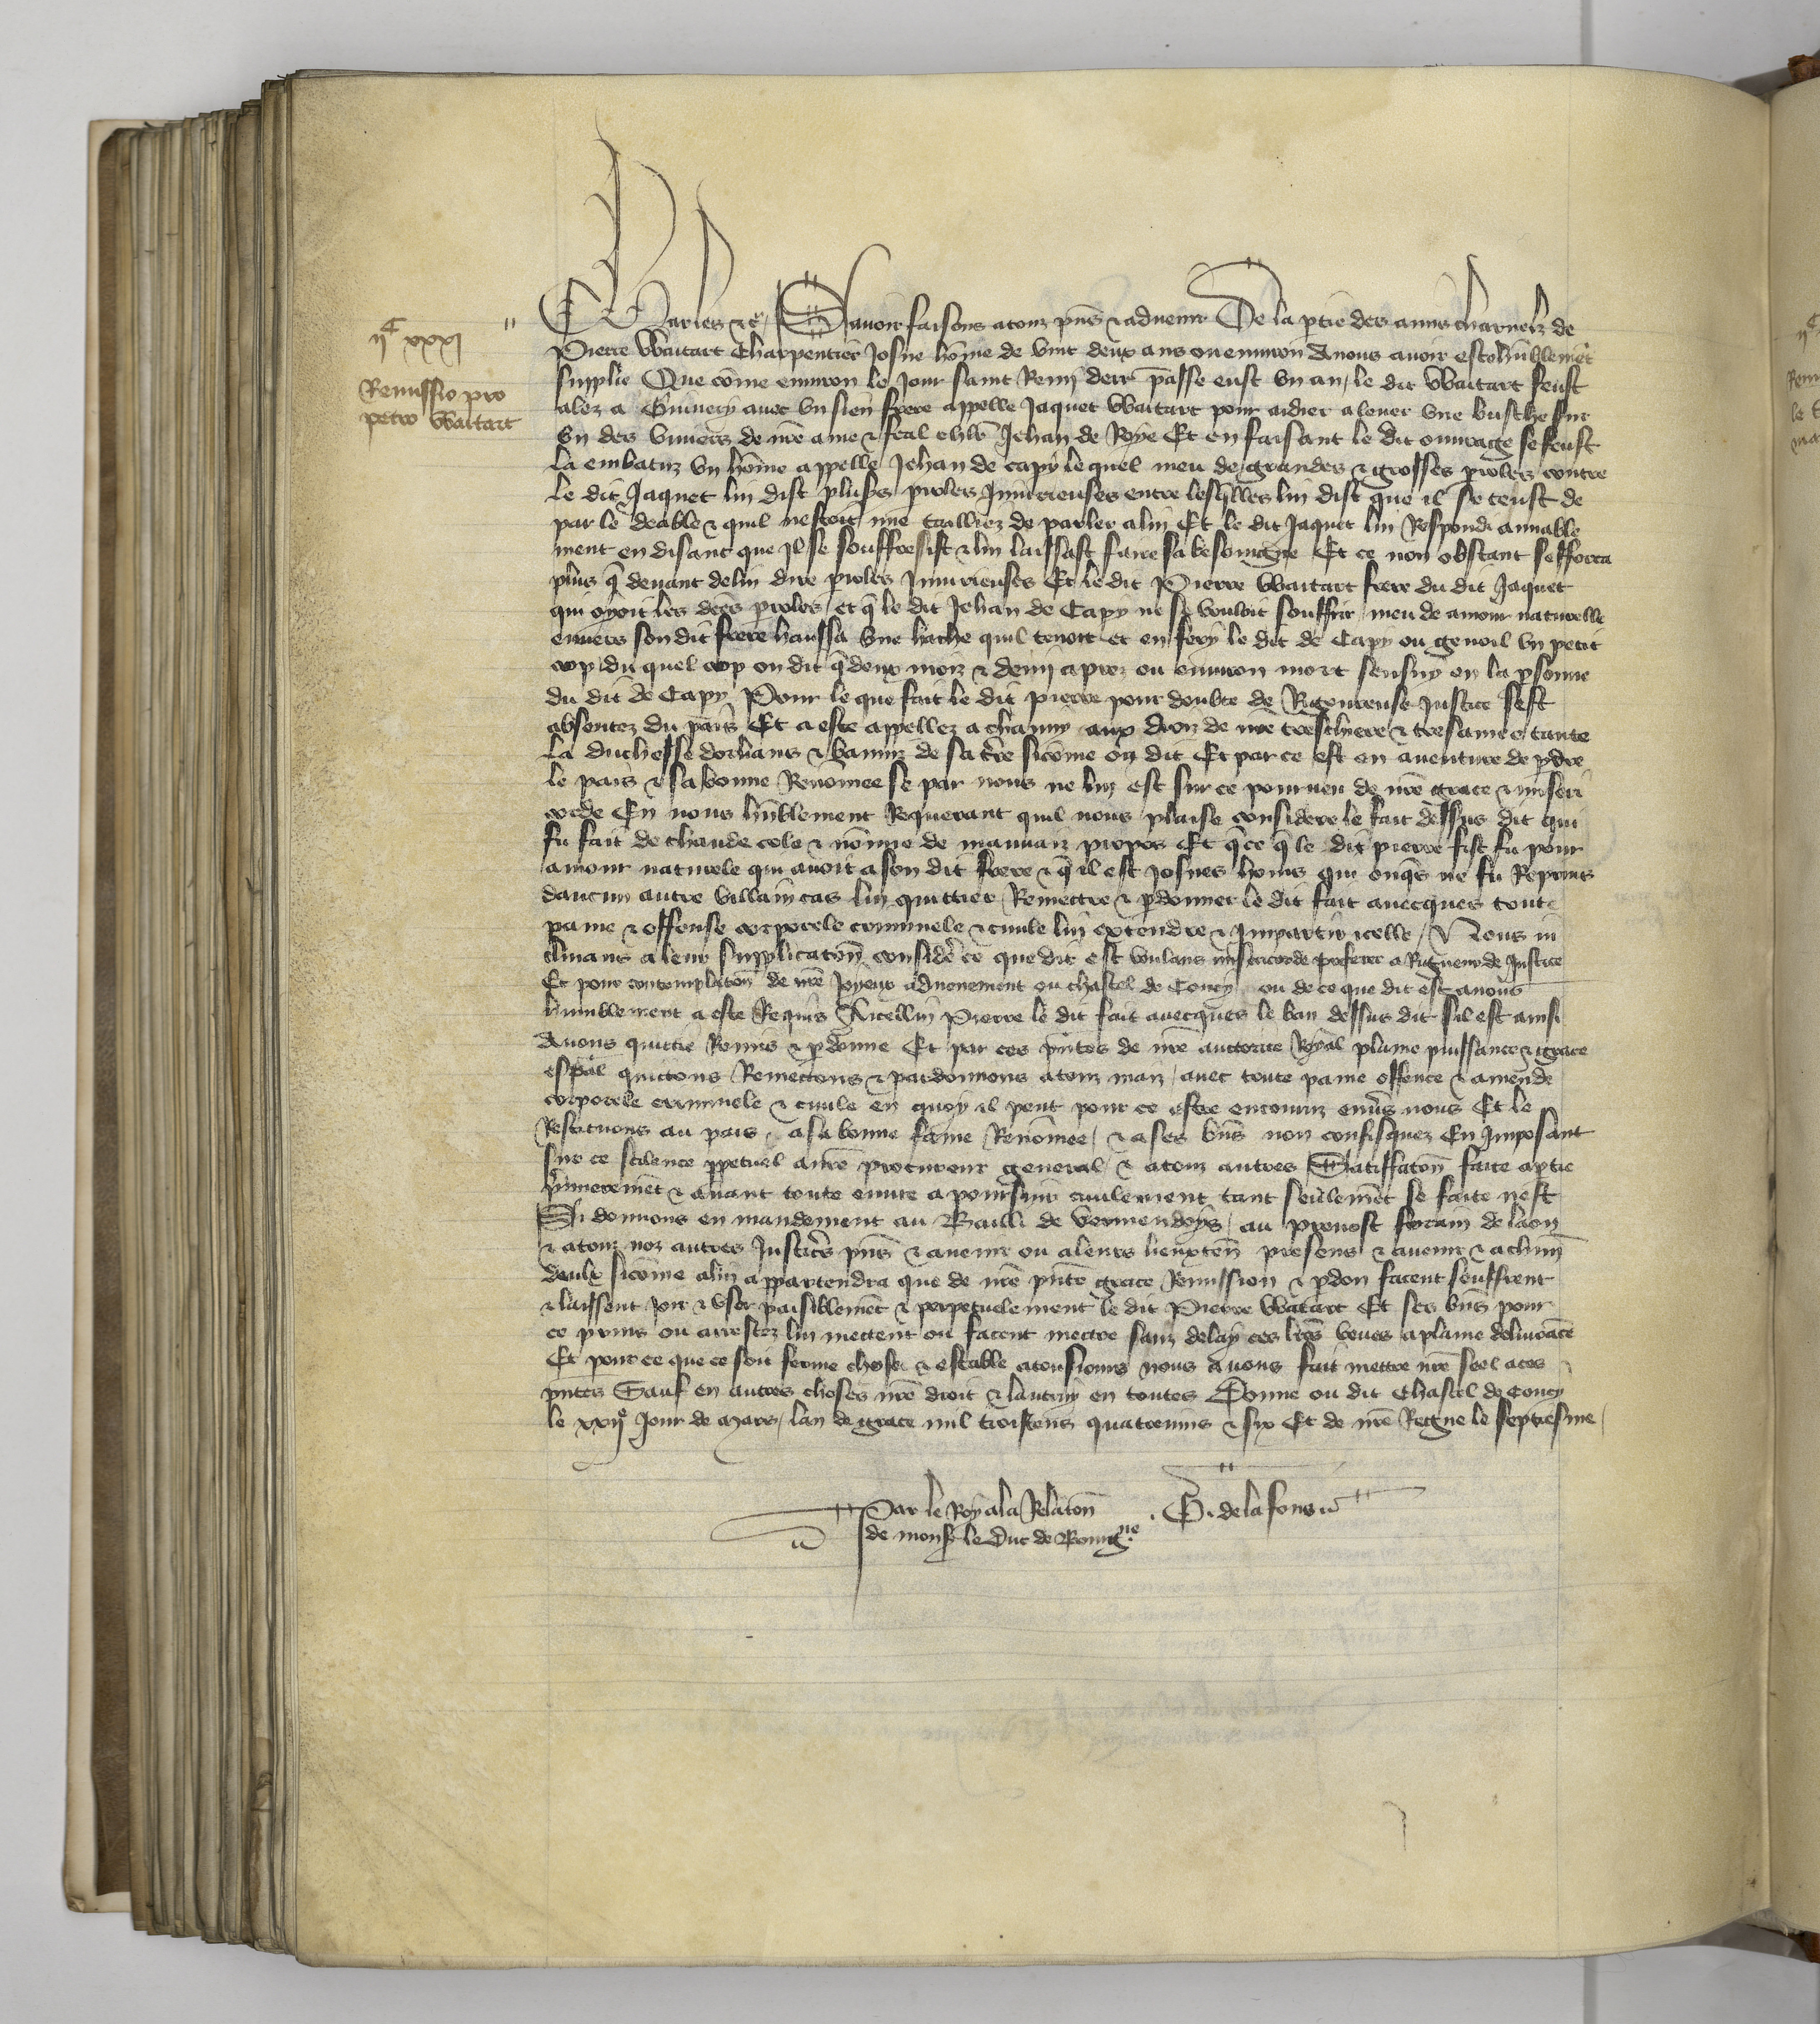 ijᶜ xxxj
Remissio pro
petro Waitart
Charles etc̃ Sauoir faisons a touz pñs & aduenir De la ptie des amis charnelz de
Pierre Waitart Charpentier Josne hom̃e de vint deux ans ou enuiron A nous auoir esté hũblemẽt
supplie Que cõme enuiron le Jour saint Remj derr̃ passe eust vn an / le dit Waitart feust
alez a Guiuery auec vn sien frere appelle Jaquet Waitart pour aidier a leuer vne busche sur
vn des viuiers de nr̃e ame & feal chlr̃ Jehan de Roye Et en faisant le dit ouurage se feust
la embatuz vn hom̃e appelle Jehan de Capy lequel meu de grandes & grosses proles contre
le dit Jaquet lui dist plus̃s proles Iniurieuses entre lesq̃lles lui dist que il se teust de
par le deable & quil nestoit mie tailliez de parler a lui Et le dit Jaquet lui Respondi amiable
ment en disant que Il se souffresist & lui laissast faire sa besoingne Et ce non obstant sefforca
plus q̃ deuant de lui dire proles Iniurieuses Et le dit Pierre Waitart frere du dit Jaquet
qui oyoit les dc̃es proles / et q̃ le dit Jehan de Capy ne se vouloit souffrir / meu de amour naturelle
enuers son dit frere haussa vne hache quil tenoit et en fery le dit de Capy ou genoil vn petit
cop / du quel cop on dit q̃ deux moiz & demj apres ou enuiron mort sensuy en la psonne
du dit de Capy Pour le que fait le dit pierre pour doubte de Rigoureuse Justice sest
absentez du pais Et a este appellez a chauny aux droiz de nr̃e treschiere & tresamee tante
la duchesse dorlians & banniz de sa tr̃re sicõme on dit Et par ce est en auenture de pdre
le pais & sa bonne Renom̃ee se par nous ne lui est sur ce pourueu de nr̃e grace & miseri
corde En nous hũblement Requerant quil nous plaise considere le fait dessus dit qui
fu fait de chaude cole & nõmie de mauuaiz propos Et q̃ ce q̃ le dit pierre fist fu pour
amour naturele qui auoit a son dit frere & q̃ il est Josnes homs qui onq̃s ne fu Repris
daucun autre villain cas lui quittier Remettre & pdonner le dit fait auecques toute
paine & offense corporele criminele & ciuile lui extendre & Impartir icelle / Nous in
clinans a leur supplicatõn considere ce que dit est voulans misericorde preferer a Rigueur de Justice
Et pour contemplatõn de nr̃e Joyeux aduenement ou chastel de Coucy ou de ce que dit est a nous
humblement a este Requis A icellui Pierre le dit fait auecques le ban dessus dit sil est ainsi
Auons quittie Remis & pdonne Et par ces pñtes de nr̃e auctorite Royal plaine puissance & grace
esp̃al quictons Remectons & pardonnons a touz iours / auec toute paine offence & amende
corporele criminele & ciuile en quoy il peut pour ce estre encouruz enũs nous Et le
Restituons au pais a sa bonne fame Renom̃ee / & a ses biẽs non confisquez En Imposant
sur ce silence ppetuel a nr̃e procureur general / & a touz autres Satiffatõn faite a ptie
p̃mierement & auant toute euure a poursuir ciuilement tant seulemẽt se faite nest
Si donnons en mandement au Bailli de Vermendoys / au preuost forain de laon
& a touz noz autres Justic̃s pñs & auenir ou a leurs lieuxteñ presens & auenir & a chũn
deulx sicõme a lui appartendra que de nr̃e pñte grace Remission & pdon facent seuffrent
& laissent joir & vser paisiblemẽt & perpetuelement le dit Pierre Waitart Et ses biẽs pour
ce prins ou arrestez lui mettent ou facent mectre sanz delay ces lr̃es veues a plaine deliurãce
Et pour ce que ce soit ferme chose & estable a tousiours nous auons fait mettre nr̃e seel a ces
pñtes Sauf en autres choses nr̃e droit & lautruy en toutes Donne ou dit Chastel de Coucy
le xxijᵉ Jour de Mars / lan de grace mil troiscens quatreuins & six Et de nr̃e Regne le septiesme /
Par le Roy a la Relatõn
de monsr̃ le Duc de Bourgne
G. de la fons